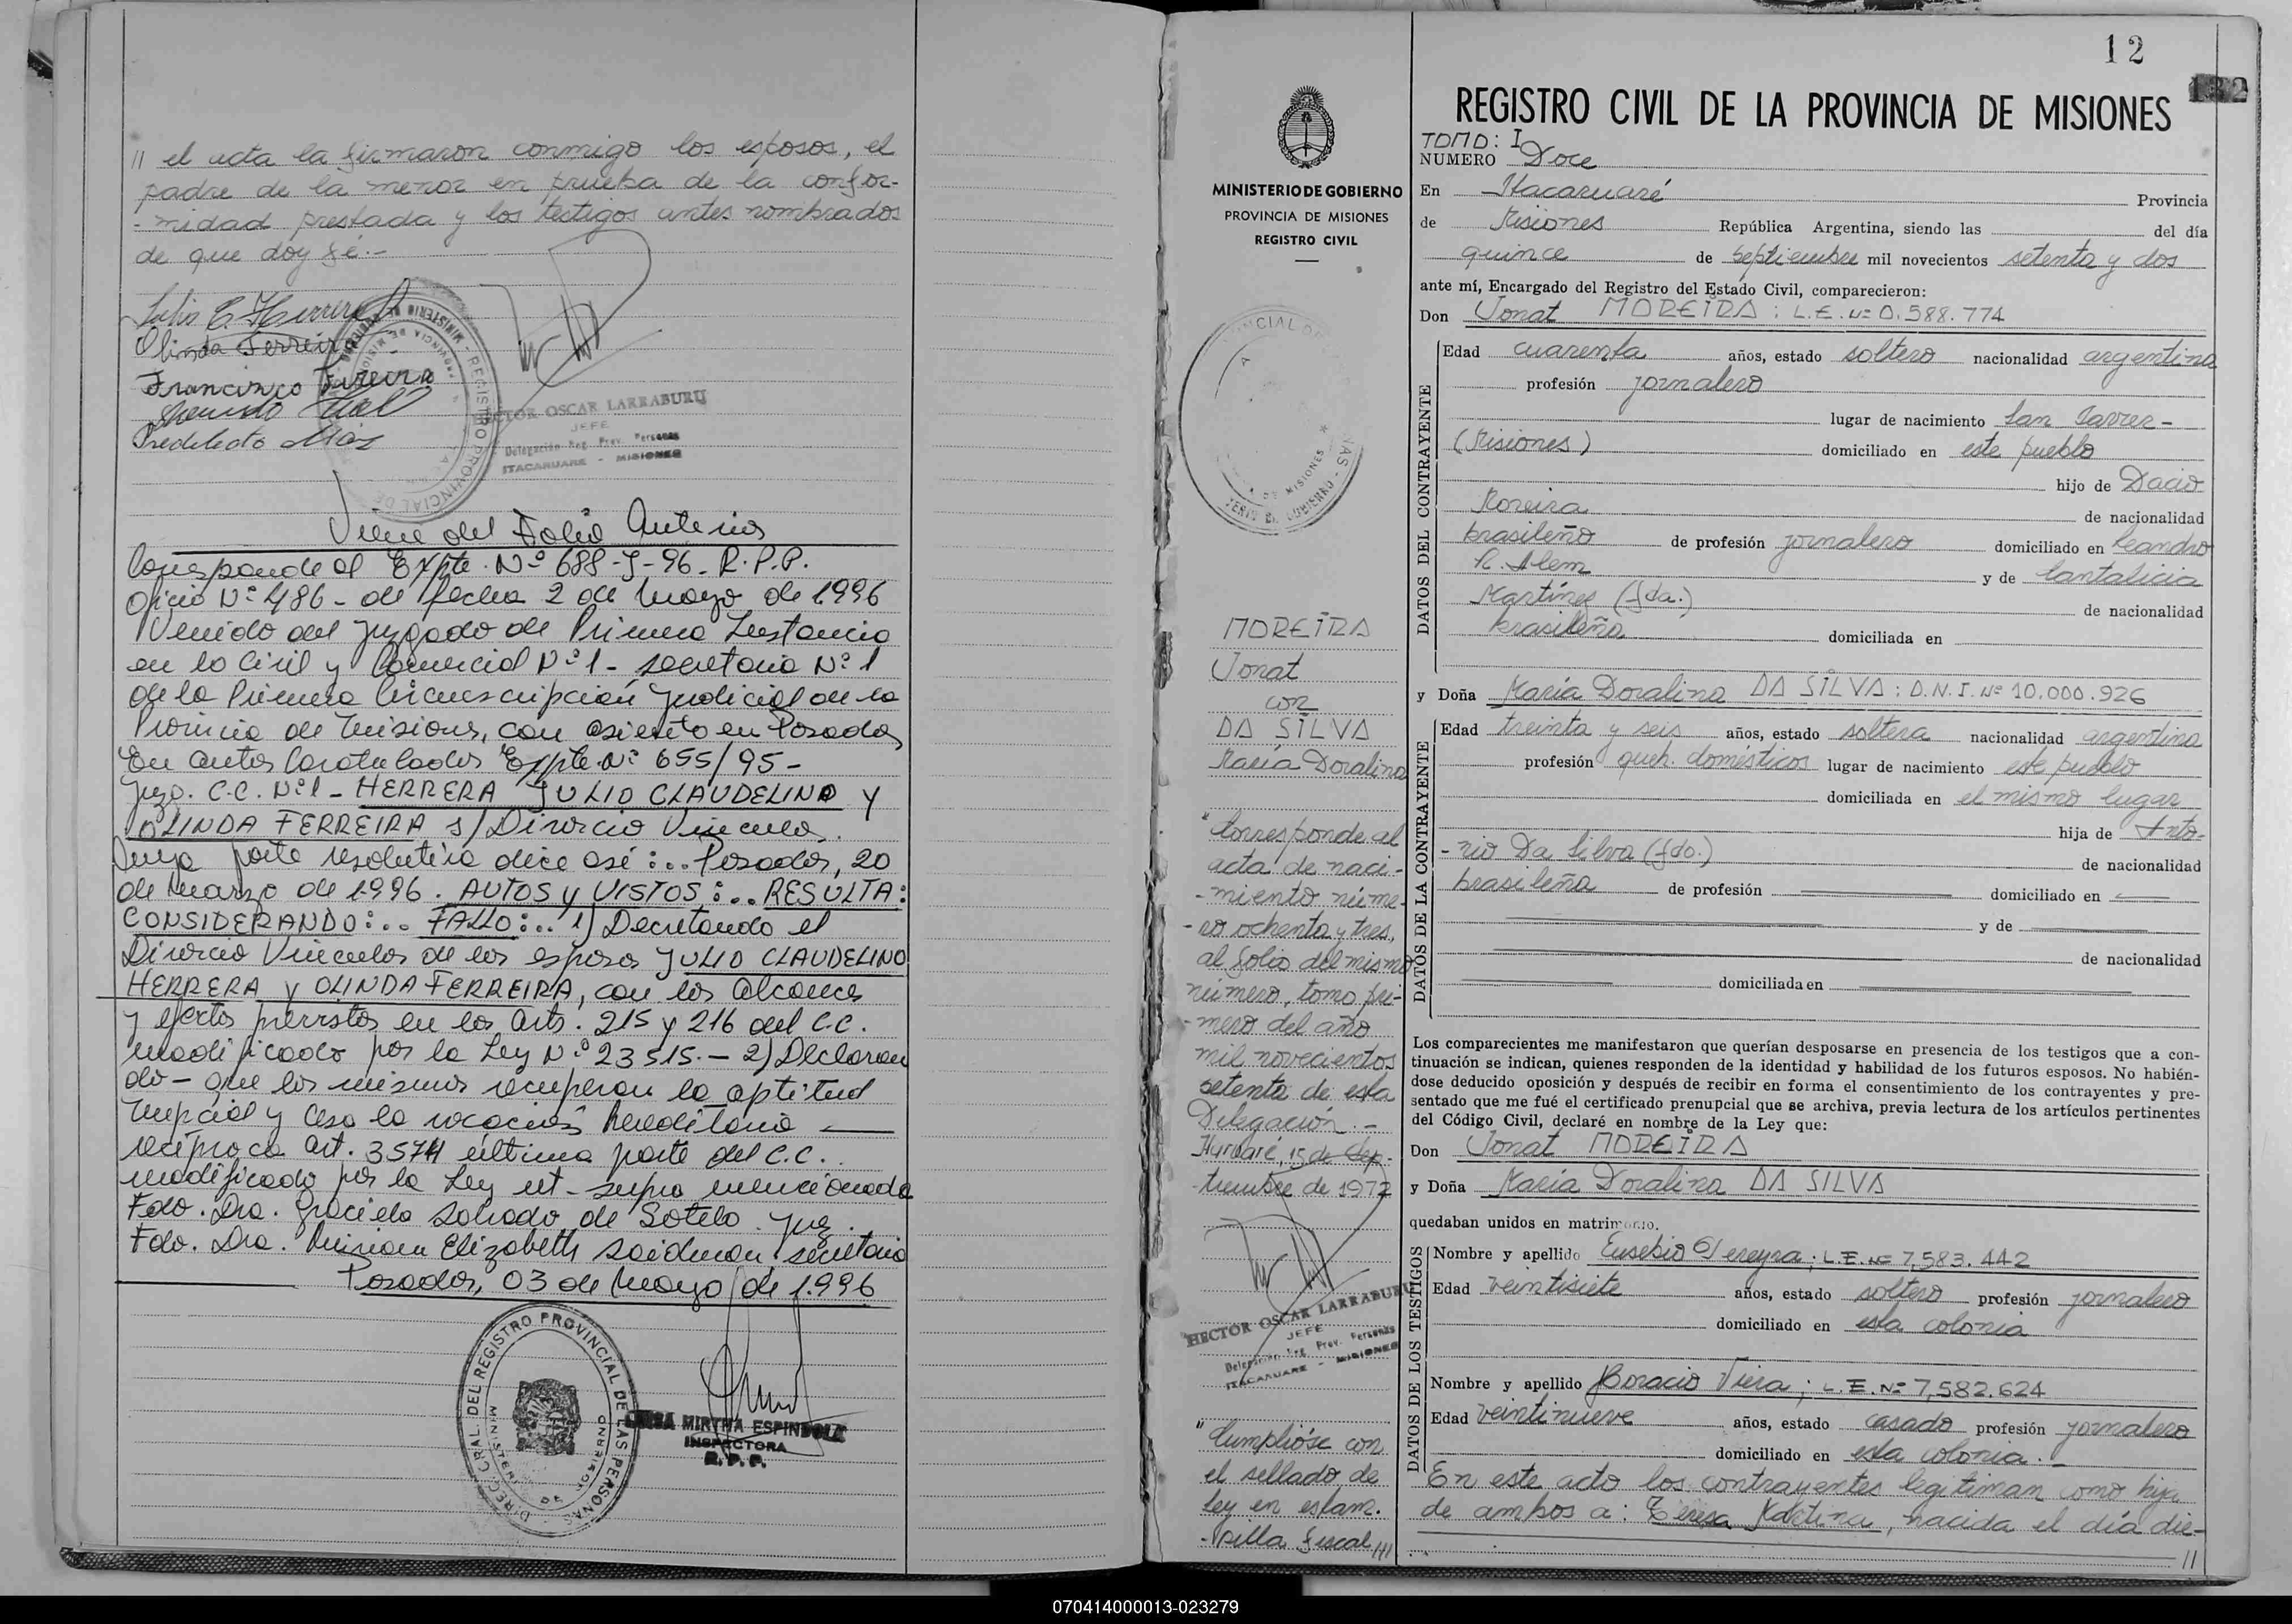 // el acta la firmaron conmigo los esposos, el
padre de la menor en prueba de la confor-
-midad prestada y los testigos antes nombrados
de que doy fé.-
Julio C. Herrera
Olinda Ferreira
Francisco Fareira
Predilecto
HECTOR OSCAR LARRABURU
JEFE
Delegación Reg. Prov. Personas
ITACARUARE - MISIONES
Viene del Folio Anterior
Corresponde al Expte. Nº 688-J-96- R.P.P.
Oficio Nº 486- de fecha 2 de Mayo de 1996
Venido del Juzgado de Primera Instancia
en lo Civil y Comercial Nº 1- secretaria Nº 1
de la Primera Circunscripción Judicial de la
Provincia de Misiones, con asiento en Posadas
En autos Caratulados Expte. Nº 655/95-
Juzg. C.C. Nº 1- HERRERA JULIO CLAUDELINO Y
OLINDA FERREIRA s/Divorcio Vincular.
Cuya parte resolutiva dice así:.. Posadas, 20
de Marzo de 1996. AUTOS Y VISTOS:.. RESULTA:
CONSIDERANDO:.. FALLO:.. 1) Decretando el
Divorcio Vincular de los esposos JULIO CLAUDELINO
HERRERA y OLINDA FERREIRA, con los alcances
y efectos previstos en los Arts. 215 y 216 del C.C.
modificado por la Ley Nº 23515.- 2) Declaran
do- que los mismos recuperan la aptitud
nupcial y cesa la vocación hereditaria
recíproca art. 3574 última parte del C.C.
modificado por la Ley ut-supra mencionada
Fdo. Dra. Graciela Salvado de Sotelo. Juez.
Fdo. Dra. Miriam Elizabeth Saidman secretaria
Posadas, 03 de Mayo de 1.996
DIREC. GRAL. DEL REGISTRO PROVINCIAL DE LAS PERSONAS
MINISTERIO DE GOBIERNO
MIRTHA ESPINDOLA
INSPECTORA
R.P.P.
MINISTERIO DE GOBIERNO
PROVINCIA DE MISIONES
REGISTRO CIVIL
MOREIRA
Jonat
con
DA SILVA
María Doralina
"Corresponde al
acta de naci-
-miento núme-
-ro ochenta y tres,
al folio del mismo
número, tomo pri-
-mero del año
mil novecientos
setenta de esta
Delegación.-
15 de Sep-
-tiembre de 1972
HECTOR OSCAR LARRABURU
JEFE
Delegación Reg. Prov. Personas
ITACARUARE - MISIONES
"Cumplióse con
el sellado de
ley en estam-
-pilla fiscal ///
12
REGISTRO CIVIL DE LA PROVINCIA DE MISIONES
TOMO: I
NUMERO Doce
En Itacaruaré Provincia
de Misiones República Argentina, siendo las del día
quince de septiembre mil novecientos setenta y dos
ante mí, Encargado del Registro del Estado Civil, comparecieron:
Don Jonat MOREIRA : L.E. Nº 0.588.774
DATOS DEL CONTRAYENTE
Edad cuarenta años, estado soltero nacionalidad argentina
profesión jornalero
lugar de nacimiento San Javier-
(Misiones) domiciliado en este pueblo
hijo de Dacio
Moreira de nacionalidad
brasileño de profesión jornalero domiciliado en Leandro
N. Alem y de Cantalicia
Martínes (fda.) de nacionalidad
brasileña domiciliada en
y Doña María Doralina DA SILVA : D.N.I. Nº 10.000.926
DATOS DE LA CONTRAYENTE
Edad treinta y seis años, estado soltera nacionalidad argentina
profesión queh. domésticos lugar de nacimiento este pueblo
domiciliada en el mismo lugar
hija de Anto-
-nio Da Silva (fdo.) de nacionalidad
brasileña de profesión domiciliado en
y de
de nacionalidad
domiciliada en
Los comparecientes me manifestaron que querían desposarse en presencia de los testigos que a con-
tinuación se indican, quienes responden de la identidad y habilidad de los futuros esposos. No habién-
dose deducido oposición y después de recibir en forma el consentimiento de los contrayentes y pre-
sentado que me fué el certificado prenupcial que se archiva, previa lectura de los artículos pertinentes
del Código Civil, declaré en nombre de la Ley que:
Don Jonat MOREIRA
y Doña María Doralina DA SILVA
quedaban unidos en matrimonio.
DATOS DE LOS TESTIGOS
Nombre y apellido Eusebio Pereyra; L.E. Nº 7,583.442
Edad veintisiete años, estado soltero profesión jornalero
domiciliado en esta colonia
Nombre y apellido Horacio Viera; L.E. Nº 7,582.624
Edad veintinueve años, estado casado profesión jornalero
domiciliado en esta colonia.-
En este acto los contrayentes legitiman como hija
de ambos a: Teresa, nacida el día die-
//
070414000013-023279